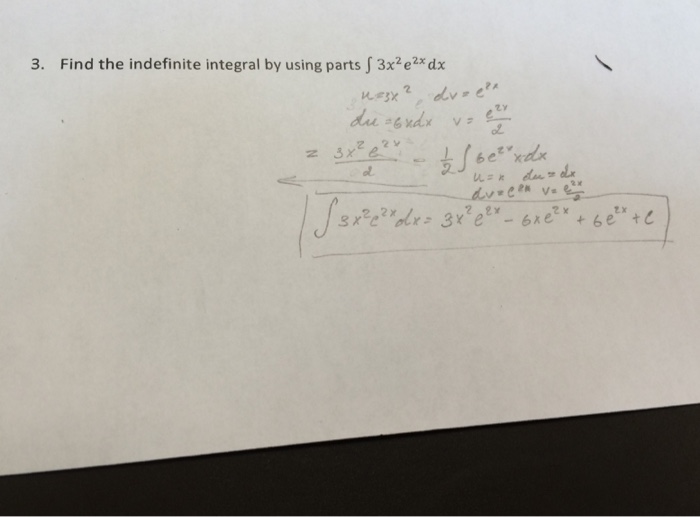 3. Find the indefinite integral by using parts ∫ 3x²e²ˣdx
u=3x², dv=e²ˣ
du=6xdx v= e²ˣ/2
= 3x²e²ˣ/2 - 1/2 ∫6e²ˣxdx
u=x du=dx
dv=e²ˣ v=e²ˣ/2
∫3x²e²ˣdx= 3x²e²ˣ - 6xe²ˣ + 6e²ˣ+C